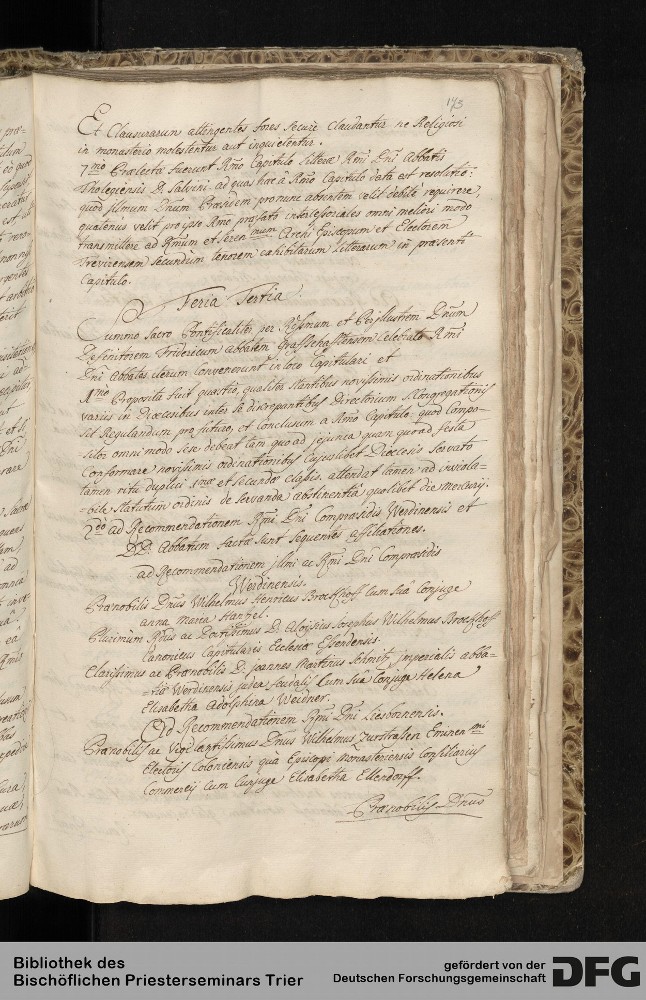 173
Et Clausurarum attingentes fores secure claudantur ne Religiosi
in monasterio molestentur aut inquietentur.
7mo Praelectae fuerunt Rmo Capitulo litterae Rmi Dni Abbatis
Tholegiensis D. Salvini. ad quas haec a Rmo Capitulo data est resolutio:
quod Illmum Dnum Praesidem pro nunc absentem velit debite requirere,
quatenus velit pro ipso Rmo praefato intercessoriales omni meliori modo
transmittere ad Rmum et seren mum Archi Episcopum et Electorem
Trevirensem secundum tenorem exhibitarum litterarum in praesenti
Capitulo.
Feria Tertia.
Summo sacro Pontificaliter per Rssmum et Perillustrem Dnum
Definitorem Fridericum abbatem Graffschafftensem Celebrato Rmi
Dni Abbates iterum Convenerunt in loco Capitulari et
1mo Proposita fuit quaestio, qualiter stantibus novissimis ordinationibus
variis in Dioecesibus inter se discrepantibus Directorium Congregationis
sit Regulandum pro futuro, et conclusum a Rmo Capitulo: quod Compo-
sitor omni modo sese debeat tam quoad jejunia quam quoad festa
Conformare novissimis ordinationibus Cujuslibet Dioecesis servato
tamen ritu duplici 1mae et secundae classis. attendat tamen ad inviola-
=bile statutum ordinis de servanda abstinentia quolibet die mercurij.
2do ad Recommendationem Rmi Dni Compraesidis Werdinensis et
DD. Abbatum factae sunt sequentes affiliationes.
ad Recommendationem Illmi ac Rmi Dni Compraesidis
Werdinensis.
Praenobilis Dnus Wilhelmus Henricus Brockhoff Cum sua Conjuge
anna Maria Hanzel.
Plurimum Rdus ac Doctissimus D. Aloysius Josephus Wilhelmus Brockhoff
Canonicus Capitularis Ecclesiae Essendensis.
Clarissimus ac Praenobilis D. Joannes Martinus Schmitz imperialis abba=
=tiae Werdinensis judex feudalis Cum sua Conjuge Helena
Elisabetha Adolphina Weidner.
Ad Recommendationem Rmi Dni Liesbornensis.
Praenobilis ac Vigilantissimus Dnus Wilhelmus Zurstrassen Eminen mi
Electoris Coloniensis qua Episcopi Monasteriensis Consiliarius
Commercij Cum Conjuge Elisabetha Ellendorff.
Praenobilis Dnus
Bibliothek des
Bischöflichen Priesterseminars Trier
gefördert von der
Deutschen Forschungsgemeinschaft
DFG